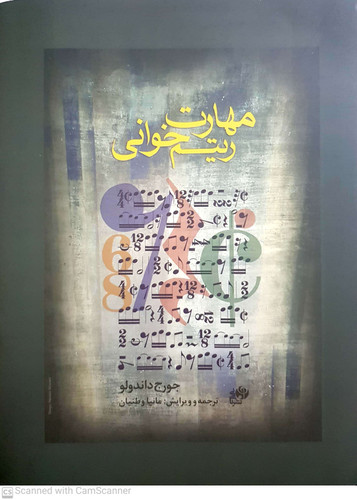 مهارت
ریتم‌خوانی
جورج داندولو
ترجمه و ویرایش: مانیا وطنیان
CS Scanned with CamScanner